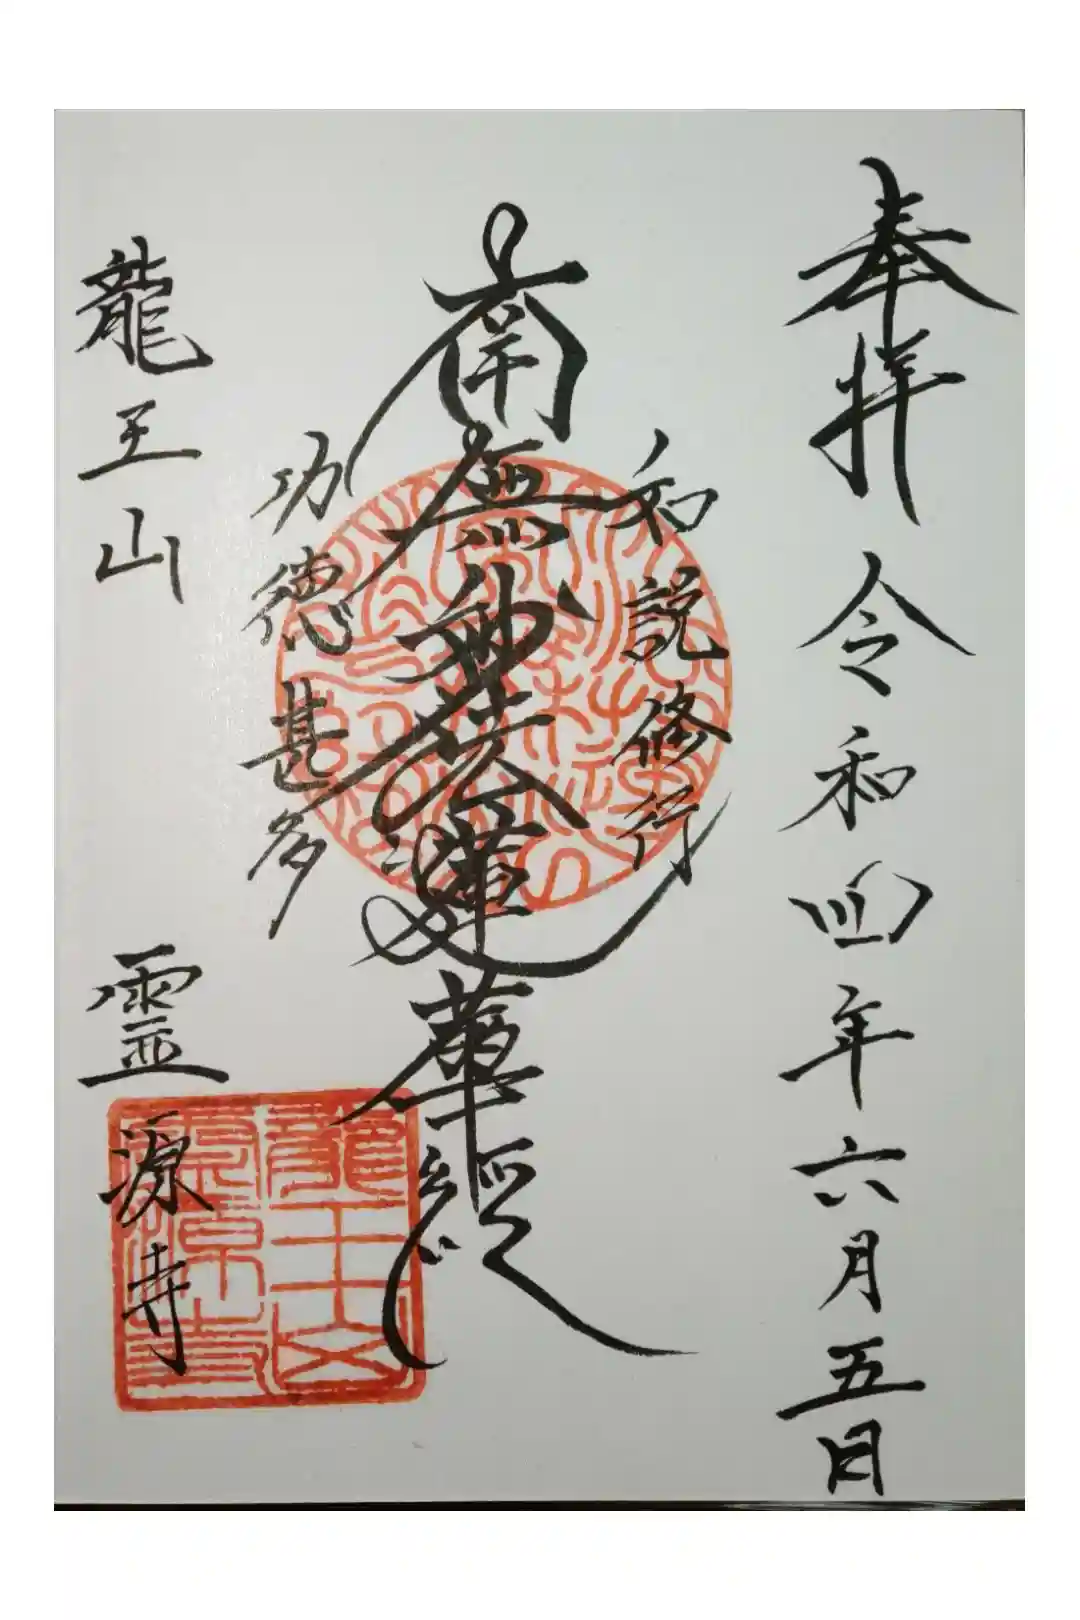 奉拝 令和四年六月五日
如説修行
南無妙法蓮華経
功徳甚多
龍王山 霊源寺
龍王山
霊源寺